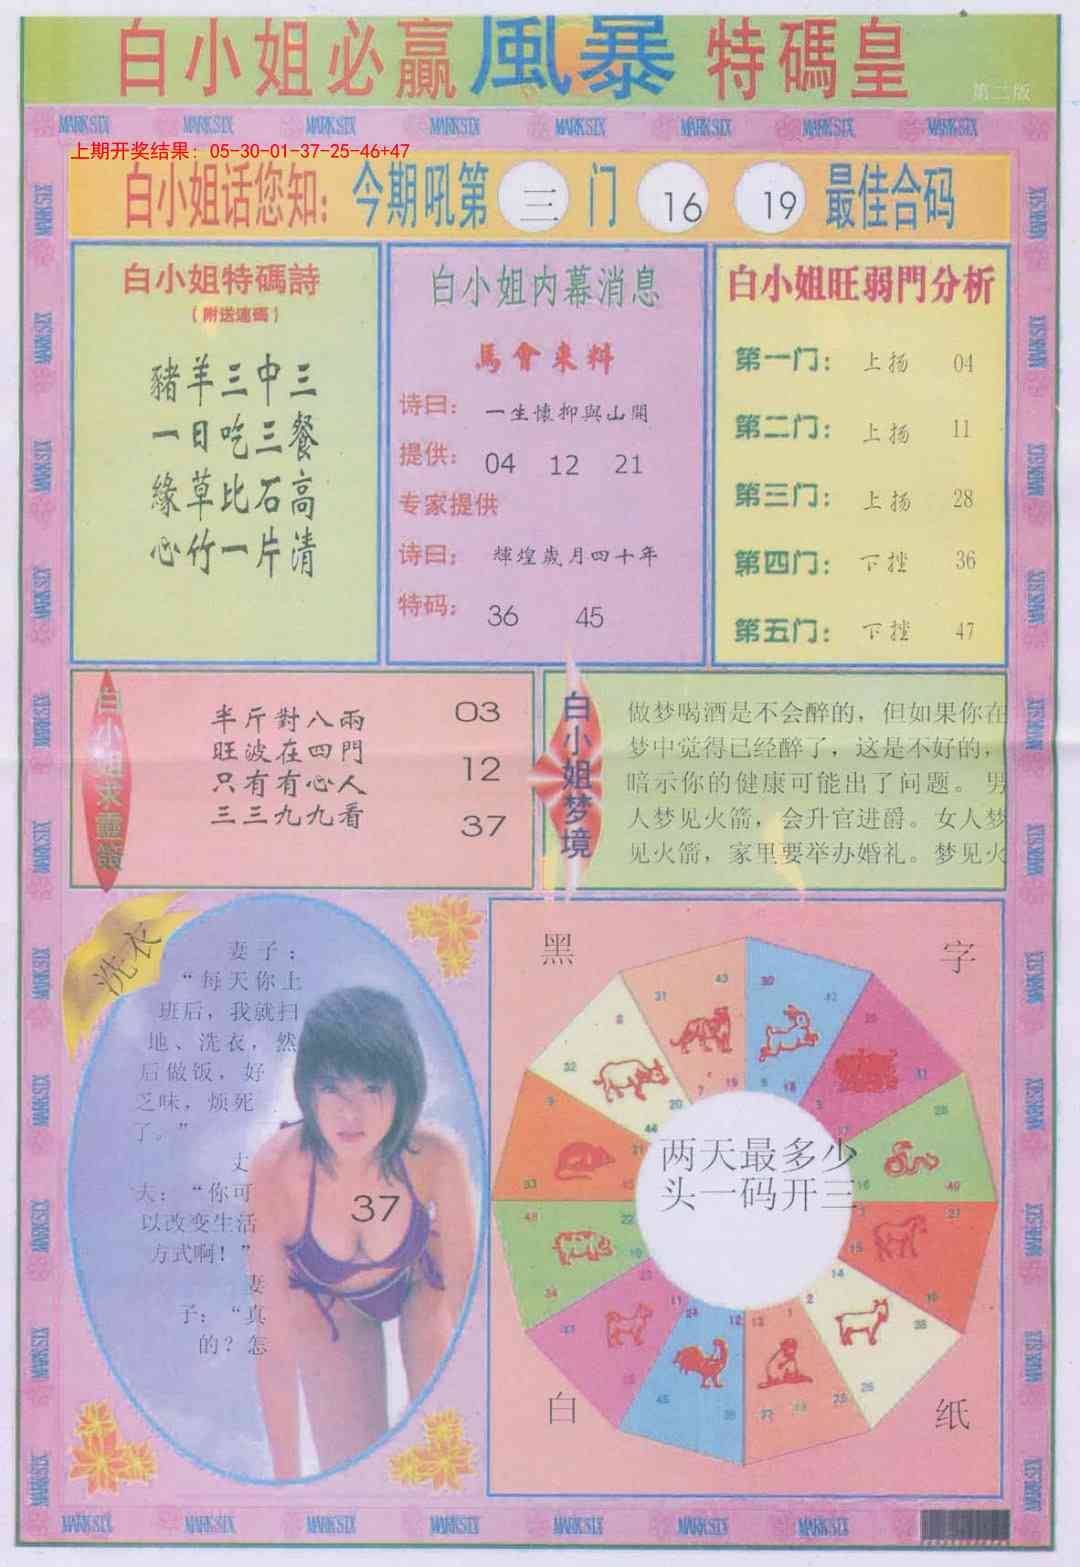 白小姐必贏風暴特碼皇
第二版
MARK SIX MARK SIX MARK SIX MARK SIX MARK SIX MARK SIX MARK SIX MARK SIX
上期开奖结果：05-30-01-37-25-46+47
白小姐话您知：今期吼第 三 门 16 19 最佳合码
白小姐特碼詩
（附送連碼）
豬羊三中三
一日吃三餐
緣草比石高
心竹一片清
白小姐内幕消息
馬會來料
诗曰：一生懷抑與山開
提供：04 12 21
专家提供
诗曰：輝煌歲月四十年
特码：36 45
白小姐旺弱門分析
第一门：上扬 04
第二门：上扬 11
第三门：上扬 28
第四门：下挫 36
第五门：下挫 47
白小姐求靈籤
半斤對八兩 03
旺波在四門
只有有心人 12
三三九九看 37
白小姐梦境
做梦喝酒是不会醉的，但如果你在
梦中觉得已经醉了，这是不好的，
暗示你的健康可能出了问题。男
人梦见火箭，会升官进爵。女人梦
见火箭，家里要举办婚礼。梦见火
洗衣
妻子：
“每天你上
班后，我就扫
地、洗衣，然
后做饭，好
乏味，烦死
了。”
丈
夫：“你可
以改变生活
方式啊！”
妻
子：“真
的？怎
37
黑 字
两天最多少
头一码开三
白 纸
MARK SIX MARK SIX MARK SIX MARK SIX MARK SIX MARK SIX MARK SIX